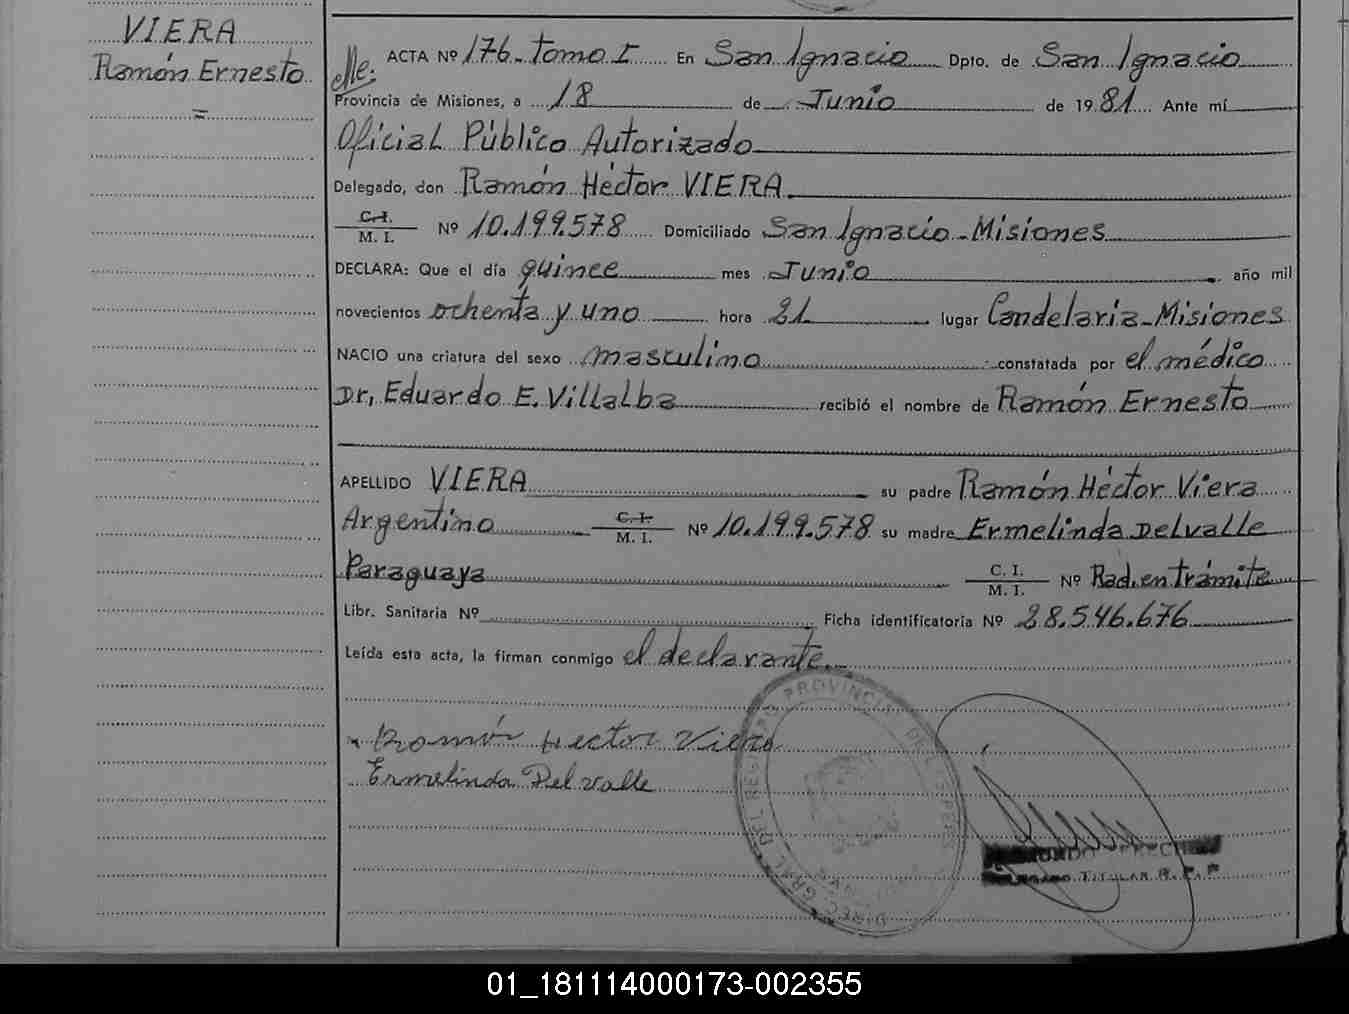 VIERA
Ramón Ernesto
=
ACTA Nº 176. Tomo I En San Ignacio Dpto. de San Ignacio
Provincia de Misiones, a 18 de Junio de 1981. Ante mí
Oficial Público Autorizado
Delegado, don Ramón Héctor VIERA
C. I. M. I. Nº 10.199.578 Domiciliado San Ignacio - Misiones
DECLARA: Que el día quince mes Junio año mil
novecientos ochenta y uno hora 21 lugar Candelaria - Misiones
NACIO una criatura del sexo masculino constatada por el médico
Dr, Eduardo E. Villalba recibió el nombre de Ramón Ernesto
APELLIDO VIERA su padre Ramón Héctor Viera
Argentino C. I. M. I. Nº 10.199.578 su madre Ermelinda Delvalle
Paraguaya C. I. M. I. Nº Rad. en trámite
Libr. Sanitaria Nº Ficha identificatoria Nº 28.546.676
Leída esta acta, la firman conmigo el declarante.
Ramón Hector Viera
Ermelinda Del valle
DIREC. GRAL DEL REGISTRO PROVINCIAL DE LAS PERS
TITULAR R. P. P
01_181114000173-002355